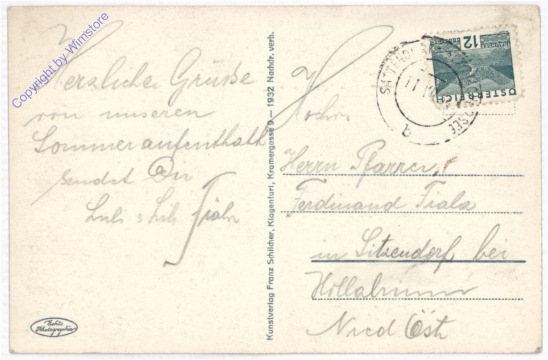 Copyright by Wimstore
Herzliche Grüße
von unseren
Sommeraufenthalt
sendet
Fiala
Echte
Photographie
Kunstverlag Franz Schilcher, Klagenfurt, Kramergasse 9 — 1932 Nachdr. verb.
12
ÖSTERREICH
SATTENDORF
11
SEE
a
Hochw.
Herrn Pfarrer
Ferdinand Fiala
in Sitzendorf bei
Hollabrunn
Nied Öst.